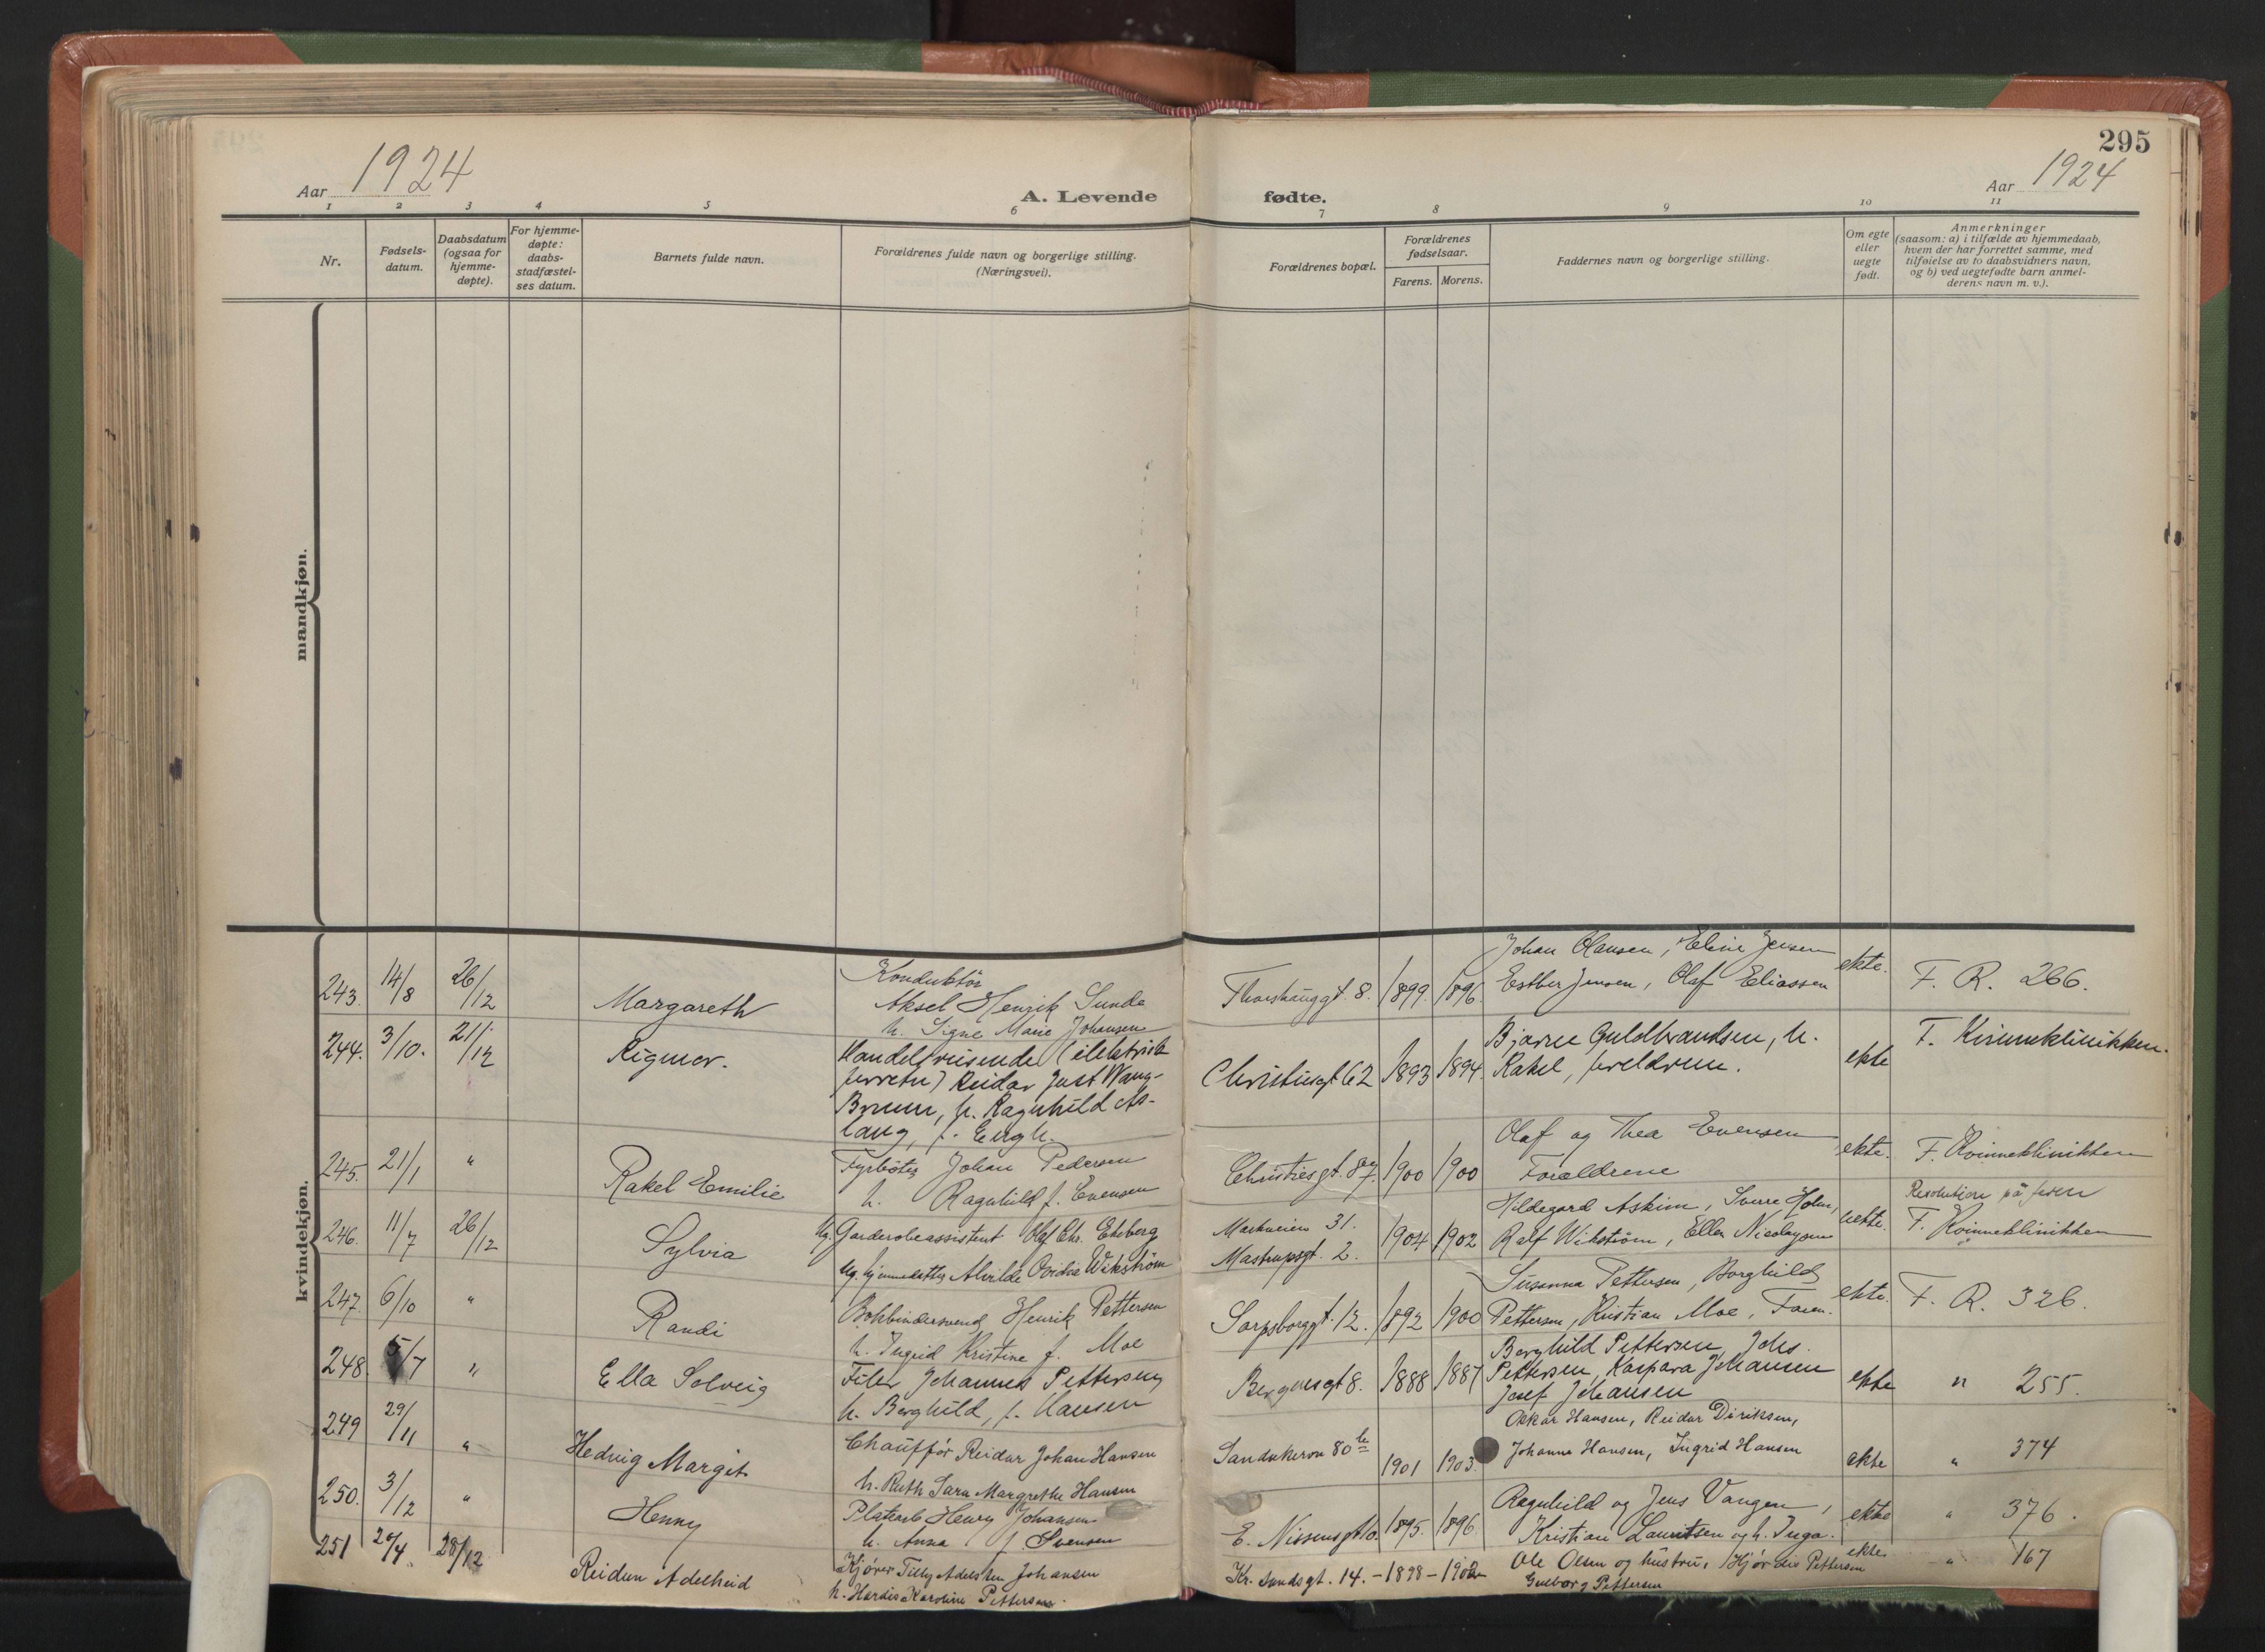 295
Aar 1924
A. Levende
fødte.
Aar 1924
1 2 3 4 5 6 7 8 9 10 11
Nr.
Fødsels-
datum.
Daabsdatum
(ogsaa for
hjemme-
døpte).
For hjemme-
døpte:
daabs-
stadfæstel-
ses datum.
Barnets fulde navn.
Forældrenes fulde navn og borgerlige stilling.
(Næringsvei).
Forældrenes bopæl.
Forældrenes
fødselsaar.
Farens. Morens.
Faddernes navn og borgerlige stilling.
Om egte
eller
uegte
født.
Anmerkninger
(saasom: a) i tilfælde av hjemmedaab,
hvem der har forrettet samme, med
tilføielse av to daabsvidners navn,
og b) ved uegtefødte barn anmel-
derens navn m. v.).
mandkjøn.
kvindekjøn.
243. 14/8 26/12
Margareth
Konduktør
Aksel Henrik Sunde
h. Signe Marie Johansen
Thorshauggt. 8. 1899. 1896.
Johan Olausen, Eline Jensen
Esther Jensen, Olaf Eliassen
ekte.
F. R. 266.
244. 3/10. 21/12
Rigmor.
Handelsreisende (elektrisk
forretn) Reidar Just Wang-
Bruun, h. Ragnhild As-
laug, f. Engh.
Christiesgt 62 1893 1894.
Bjarne Guldbrandsen, h.
Rakel, foreldrene.
ekte
F. Kvinneklinikken.
245. 21/1 "
Rakel Emilie
Fyrbøter Johan Pedersen
h. Ragnhild f. Evensen
Christiesgt. 1900 1900
Olaf og Thea Evensen
Forældrene
ekte.
F. Kvinneklinikken
246. 11/7 26/12
Sylvia
Ug. Garderobeassistent Olaf Chr. Ekeberg
Ug. hjemmedatter Alvilde Ovidia Wikstrøm
Markveien 31.
Mastrupsgt. 2. 1904 1902
Hildegard Askim, Sverre Holm,
Ralf Wikstrøm, Ellen Nicolaysen
uekte.
Resolution på faren
F. Kvinneklinikken
247. 6/10 "
Randi
Bokbindersvend Henrik Pettersen
h. Ingrid Kristine f. Moe
Sarpsborggt. 12. 1892 1900
Susanna Pettersen, Borghild
Pettersen, Kristian Moe, Faren.
ekte.
F. R. 326.
248. 5/7 "
Ella Solveig
Filer Johannes Pettersen,
h. Borghild, f. Hansen
Bergensgt 8. 1888 1887
Borghild Pettersen, Johs.
Pettersen, Kaspara Johansen
Josef Johansen
ekte
" 255.
249 29/11 "
Hedvig Margit
Chauffør Reidar Johan Hansen
h. Ruth Sara Margrethe Hansen
Sandakerve 80 1901 1903.
Oskar Hansen, Reidar Diriksen,
Johanne Hansen, Ingrid Hansen
ekte
" 374
250. 3/12 "
Henny
Platearb Henry Johansen
h. Anna f. Svensen
E. Nissensgt 1895. 1896.
Ragnhild og Jens Vangen,
Kristian Lauritsen og h. Inga.
ekte
" 376.
251 20/4. 28/12
Reidun Adelheid
Kjører Tilly Adelsten Johansen
h. Hardis Karoline Pettersen.
Kr. sundsgt. 14. - 1898 - 1902
Ole Olsen og hustru, Hjørdis Pettersen
Gudborg Pettersen
ekte
" 167